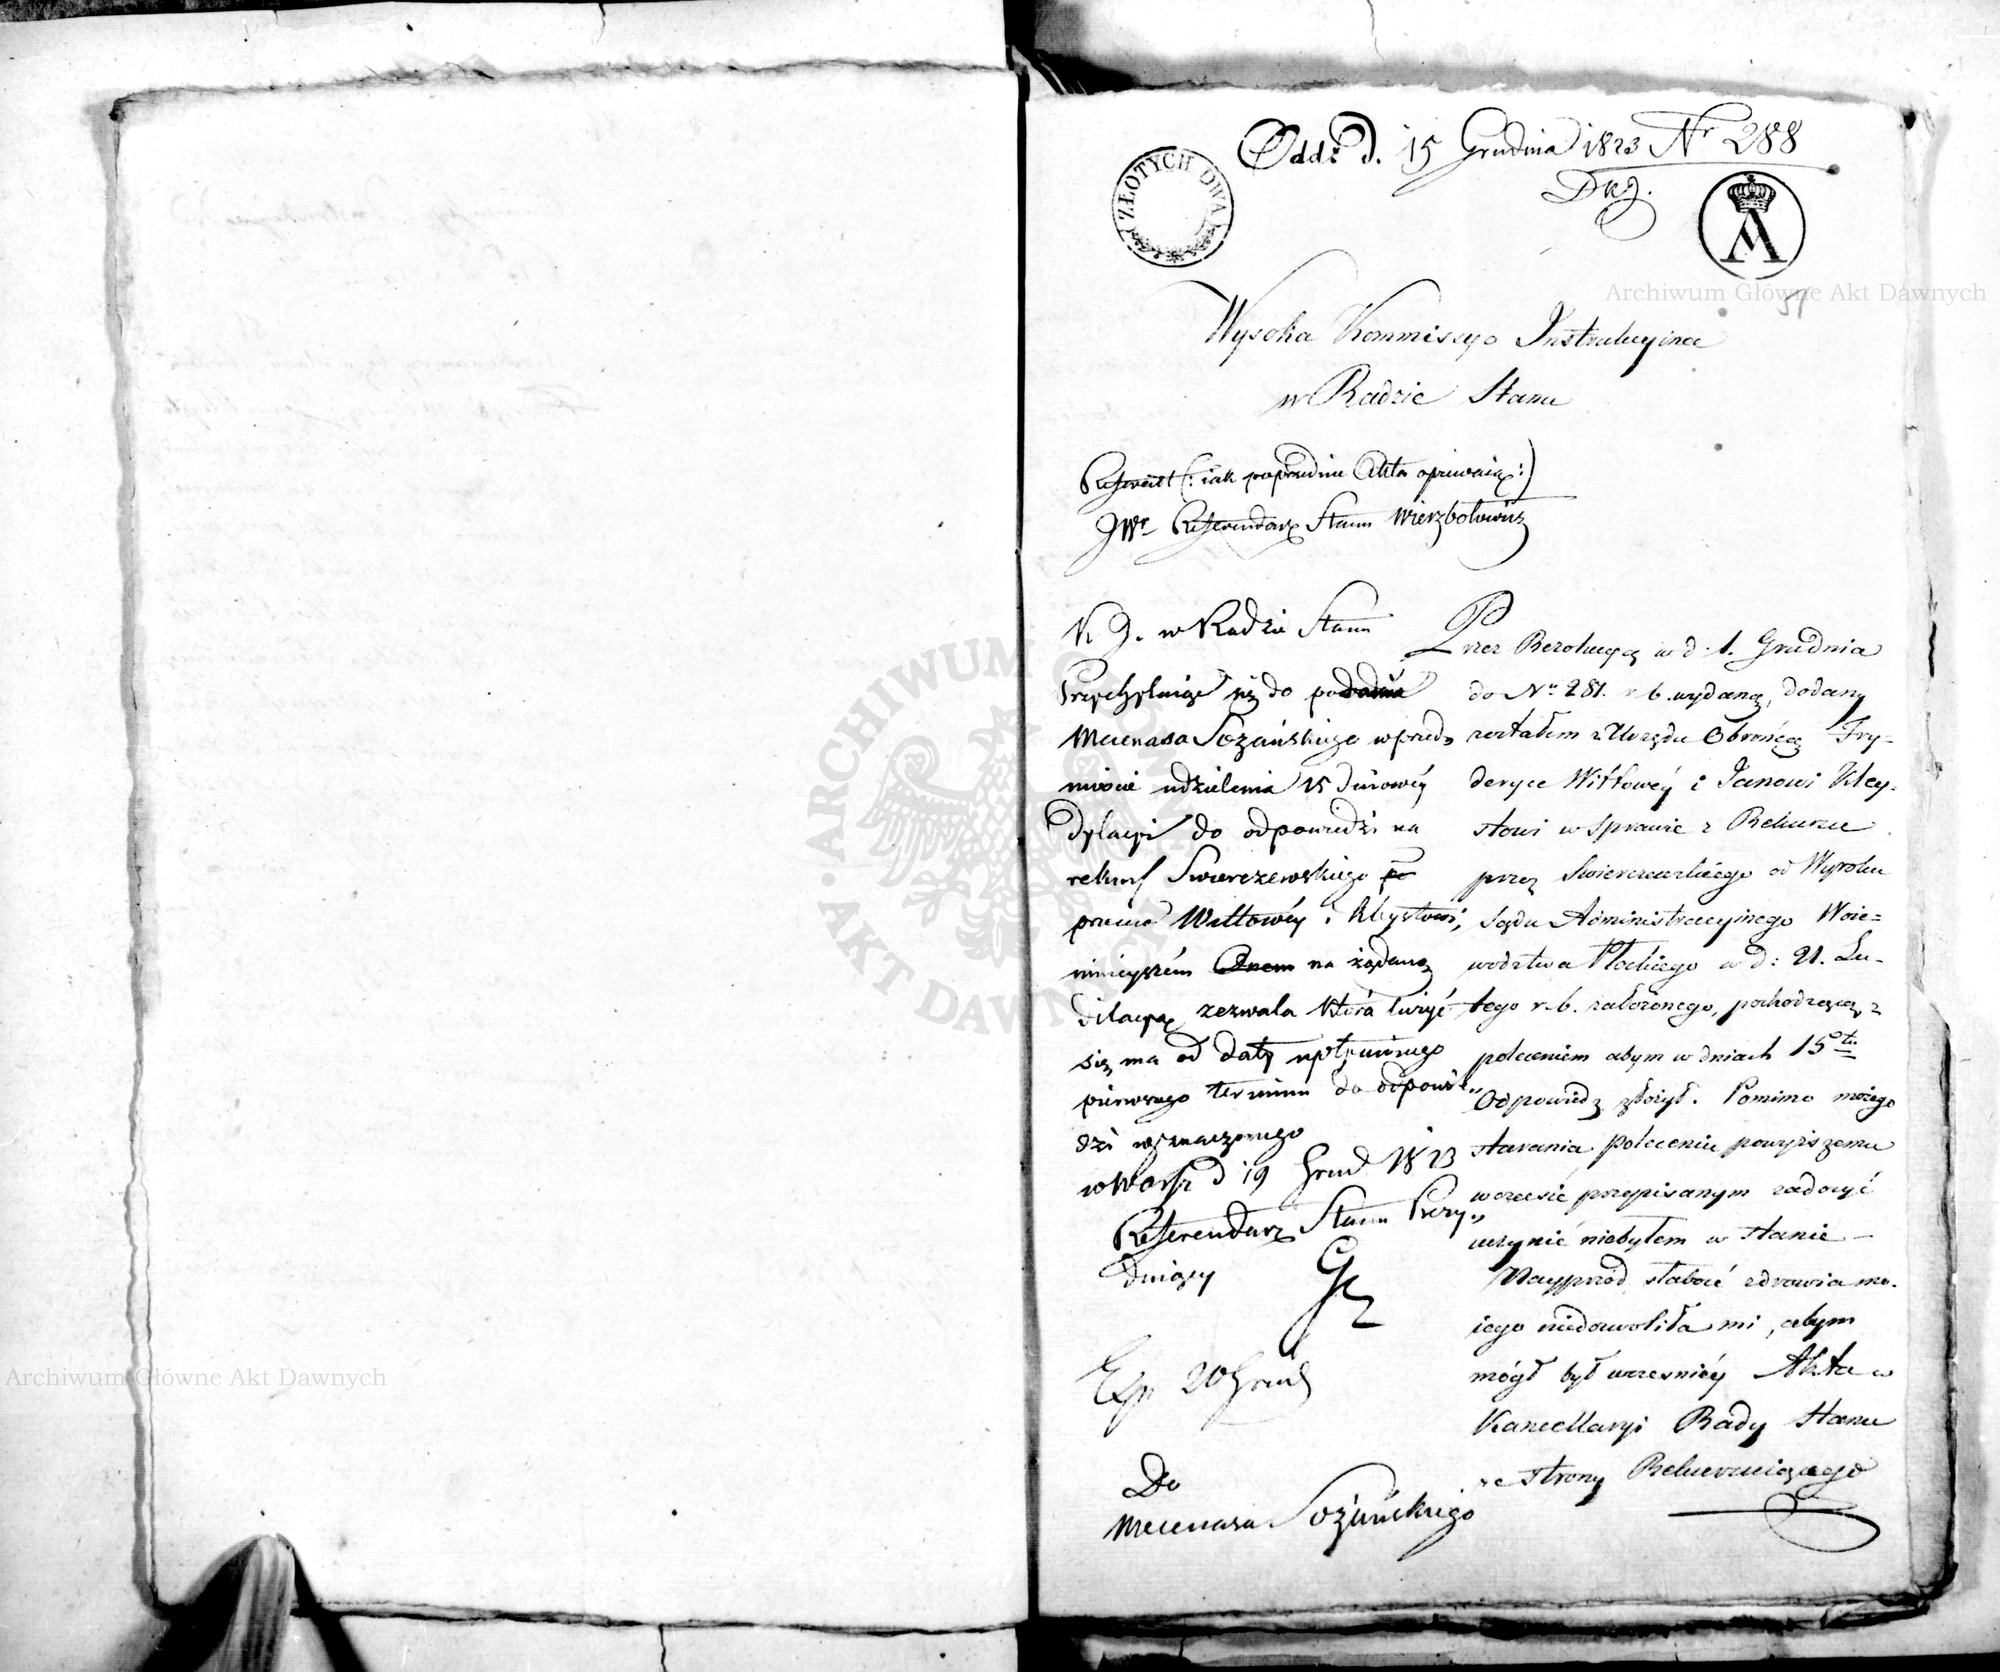 Odd: d. 15 Grudnia 1823 Nr 288
ZŁOTYCH DWA
A
51
Wysoka Kommissyo Instrukcyina
w Radzie Stanu
Referent (: iak poprzednie Akta opiewaią :)
JWr Referendarz Stanu Wierzbołowicz
K J. w Radzie Stanu
Przychylaiąc się do podania
Mecenasa Łożańskiego w przed
miocie udzielenia 15 dniowéy
dylacyi do odpowiedzi na
rekurs Swierczewskiego
przeciw Wittowéy i Kleystowi,
ninieyszém na żądaną
dilacyą zezwala która liczyć
się ma od daty upłynionego
pierwszego terminu do odpowie„
dzi wyznaczonego
w Warsz d 19 Grud 1823
Referendarz Stanu Prezy„
duiący
Exp 20 Grud
Do
Mecenasa Łożańskiego
Przez Rezolucyą w d. 1. Grudnia
do Nru 281. r. b. wydaną, dodany
zostałem z Urzędu Obrońcą Fry-
deryce Wittowéy i Janowi Kley-
stowi w Sprawie z Rekursu
przez Swierczewskiego od Wyroku
Sądu Administracyinego Woie=
wództwa Płockiego w d: 21. Lu-
tego r. b. założonego, pochodzącéy z
poleceniem abym w dniach 15tu
Odpowiedz złożył. Pomimo możego
starania poleceniu powyższemu
w czasie przepisanym zadosyć
uczynić niebyłem w stanie —
Nayprzód słabość zdrowia mo-
iego niedozwoliła mi, abym
mógł był wcześniéy Akta w
Kancellaryi Rady Stanu
ze strony Rekurruiącego
Archiwum Główne Akt Dawnych
Archiwum Główne Akt Dawnych
ARCHIWUM GŁÓWNE AKT DAWNYCH